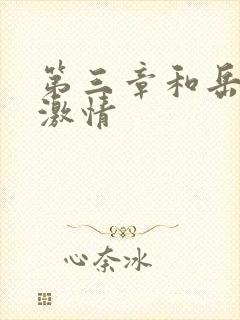 第三章和岳
激情
心奈冰